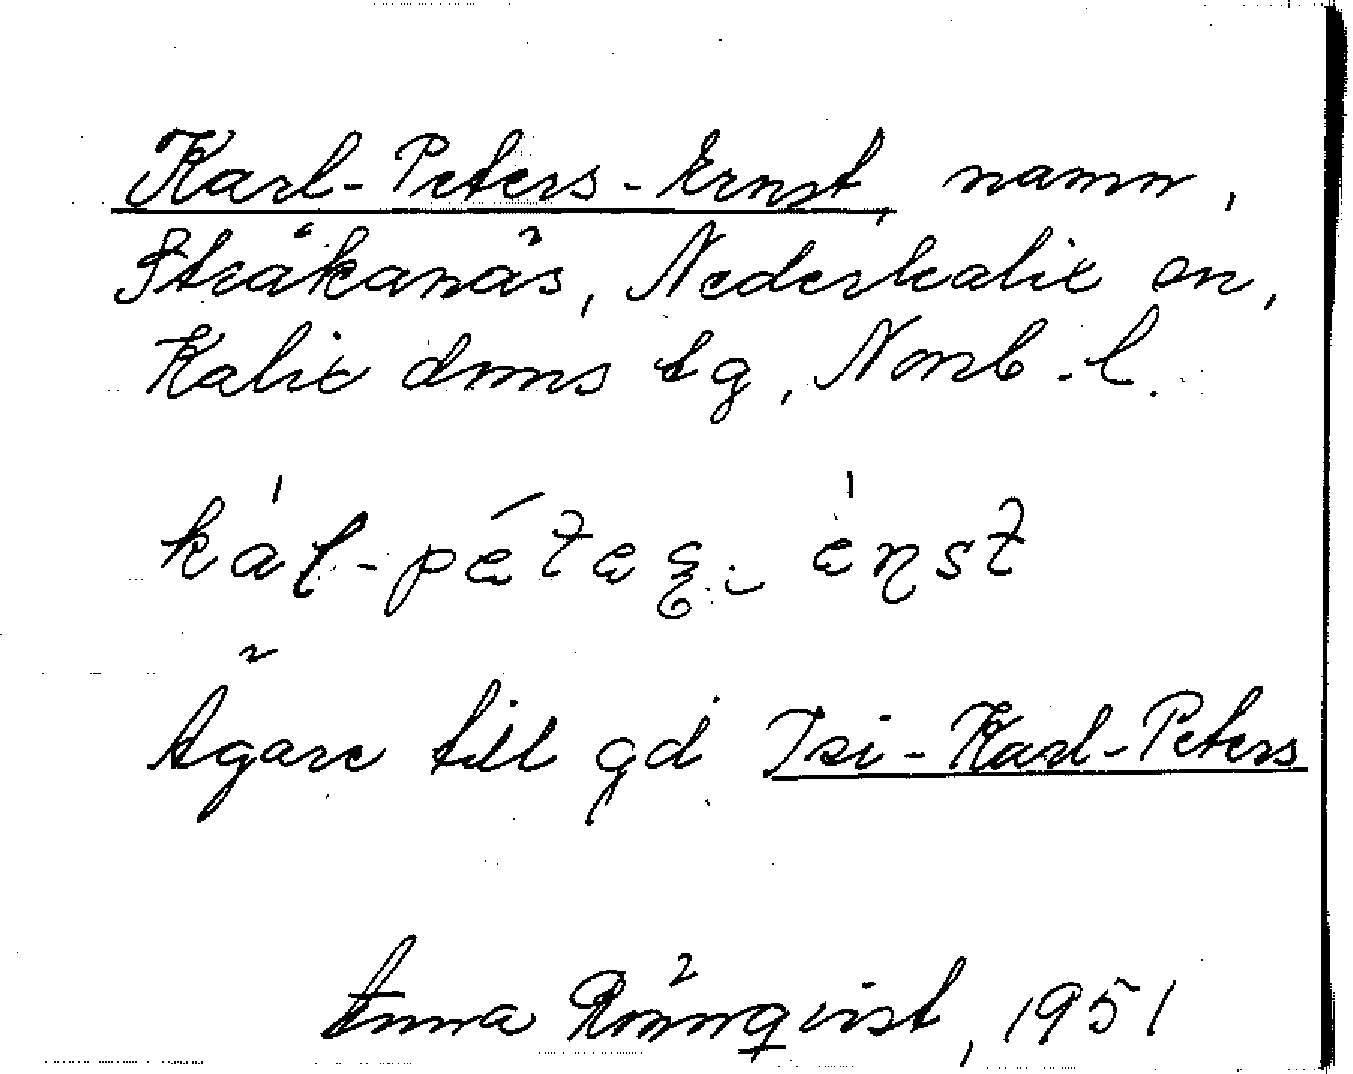 Karl-Peters-Ernst, namn,
Stråkanäs, Nederkalix sn,
Kalix doms tg, Norrb. l.
kál-péteʂ- ènst
Ägare till gd Isi-Karl-Peters
Anna Rönnqvist, 1951